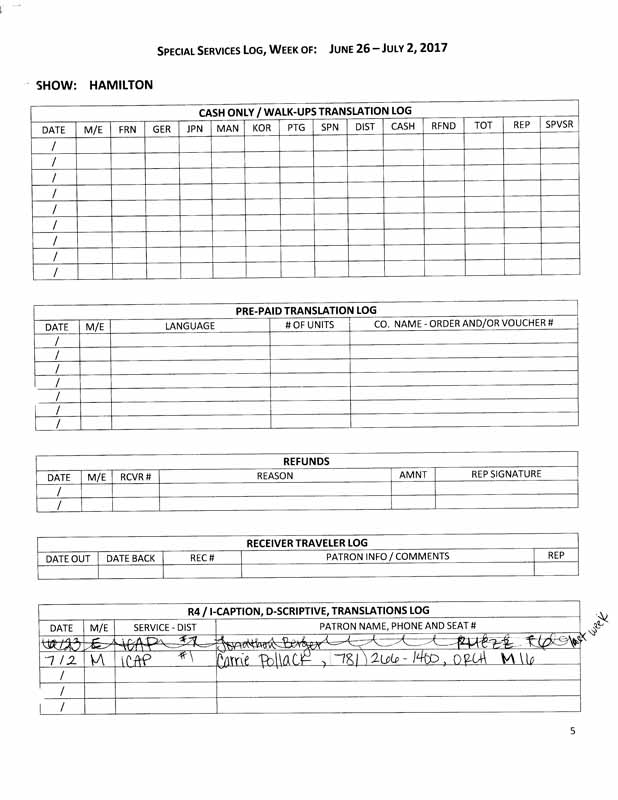 SPECIAL SERVICES LOG, WEEK OF: JUNE 26 – JULY 2, 2017
SHOW: HAMILTON
CASH ONLY / WALK-UPS TRANSLATION LOG
DATE M/E FRN GER JPN MAN KOR PTG SPN DIST CASH RFND TOT REP SPVSR
/
/
/
/
/
/
/
/
/
PRE-PAID TRANSLATION LOG
DATE M/E LANGUAGE # OF UNITS CO. NAME - ORDER AND/OR VOUCHER #
/
/
/
/
/
/
/
REFUNDS
DATE M/E RCVR # REASON AMNT REP SIGNATURE
/
/
RECEIVER TRAVELER LOG
DATE OUT DATE BACK REC # PATRON INFO / COMMENTS REP
R4 / I-CAPTION, D-SCRIPTIVE, TRANSLATIONS LOG
DATE M/E SERVICE - DIST PATRON NAME, PHONE AND SEAT #
6/23 E ICAP Jonathan Berger last week
7/2 M ICAP #1 Carrie Pollack, 781) 266-1400, ORCH M16
/
/
/
5